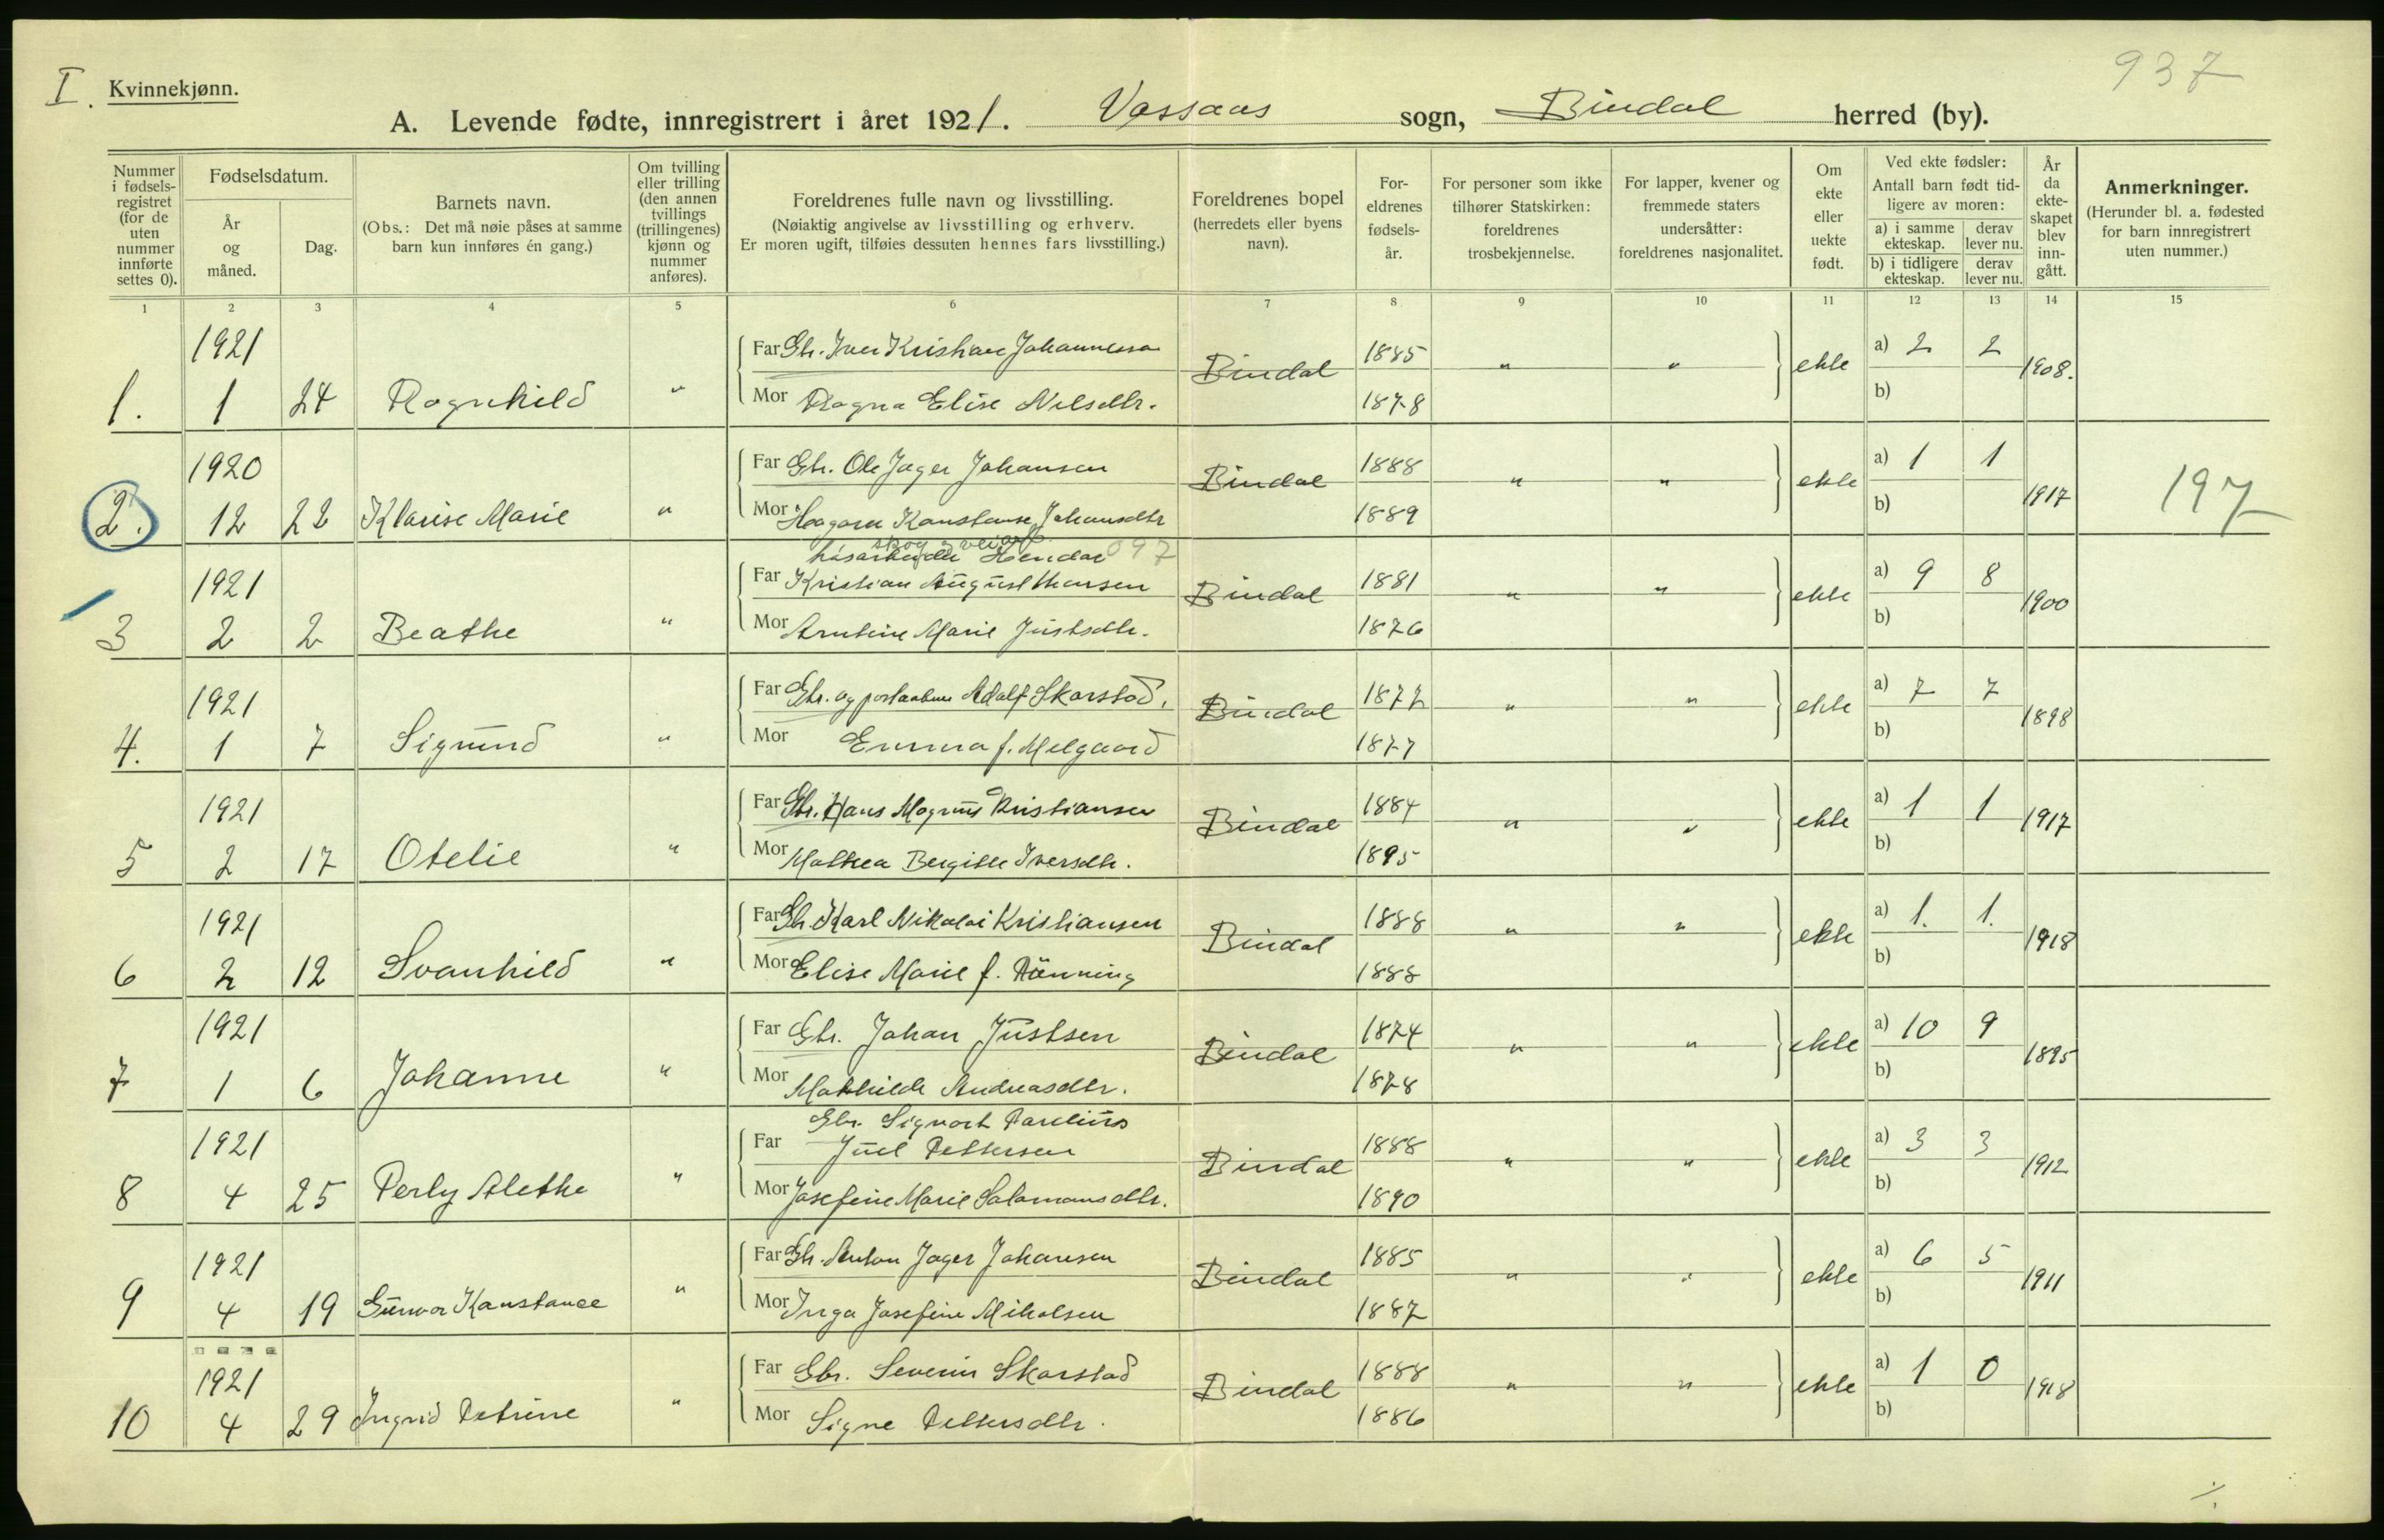 I. Kvinnekjønn. 937
A. Levende fødte, innregistrert i året 1921. Vassaas sogn, Bindal herred (by).
Nummer i fødselsregistret (for de uten nummer innførte settes 0).
Fødselsdatum.
År og måned.
Dag.
Barnets navn.
(Obs.: Det må nøie påses at samme barn kun innføres én gang.)
Om tvilling eller trilling (den annen tvillings (trillingenes) kjønn og nummer anføres).
Foreldrenes fulle navn og livsstilling.
(Nøiaktig angivelse av livsstilling og erhverv.
Er moren ugift, tilføies dessuten hennes fars livsstilling.)
Foreldrenes bopel (herredets eller byens navn).
Foreldrenes fødselsår.
For personer som ikke tilhører Statskirken: foreldrenes trosbekjennelse.
For lapper, kvener og fremmede staters undersåtter: foreldrenes nasjonalitet.
Om ekte eller uekte født.
Ved ekte fødsler:
Antall barn født tidligere av moren:
a) i samme ekteskap. derav lever nu.
b) i tidligere ekteskap. derav lever nu.
År da ekteskapet blev inngått.
Anmerkninger.
(Herunder bl. a. fødested for barn innregistrert uten nummer.)
1 2 3 4 5 6 7 8 9 10 11 12 13 14 15
1921 Far Gbr. Iver Kristian Johannessen 1885 a) 2 2
1. 1 24 Ragnhild " Mor Ragna Elise Nilsdtr. Bindal 1878 " " ekte b) 1908.
1920 Far Gbr. Ole Jager Johansen 1888 a) 1 1
2. 12 22 Klarise Marie " Mor Haagora Konstanse Johansdtr Bindal 1889 " " ekte b) 1917 197
Hendar 097
1921 Far Kristian August Hansen 1881 a) 9 8
3 2 2 Beathe " Mor Arntine Marie Justsdtr. Bindal 1876 " " ekte b) 1900
1921 Far Gbr. og postaabner Adolf Skarstad. 1872 a) 7 7
4. 1 7 Sigrund " Mor Emma f. Melgaard Bindal 1877 " " ekte b) 1898
1921 Far Gbr. Hans Magnus Kristiansen 1884 a) 1 1
5 2 17 Otelie " Mor Mathea Bergitte Iversdtr. Bindal 1895 " " ekte b) 1917
1921 Far Gbr. Karl Nikolai Kristiansen 1888 a) 1. 1.
6 2 12 Svanhild " Mor Elise Marie f. Rønning Bindal 1888 " " ekte b) 1918
1921 Far Gbr. Johan Justsen 1874 a) 10 9
7 1 6 Johanne " Mor Mathilde Andreasdtr. Bindal 1878 " " ekte b) 1895
Gbr. Sigvart Parelius
1921 Far Juel Pettersen 1888 a) 3 3
8 4 25 Perly Alethe " Mor Josefine Marie Salamonsdtr. Bindal 1890 " " ekte b) 1912
1921 Far Gbr. Anton Jager Johansen 1885 a) 6 5
9 4 19 Gunvor Konstance " Mor Inga Josefine Mikalsen Bindal 1887 " " ekte b) 1911
1921 Far Gbr. Severin Skarstad 1888 a) 1 0
10 4 29 Ingrid Petrine " Mor Signe Pettersdtr. Bindal 1886 " " ekte b) 1918